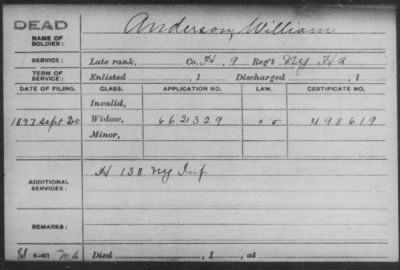 DEAD
NAME OF SOLDIER:
Anderson, William
SERVICE:
Late rank, Co. H, 9 Reg't Ny H A
TERM OF SERVICE:
Enlisted , 1 Discharged , 1
DATE OF FILING. CLASS. APPLICATION NO. LAW. CERTIFICATE NO.
Invalid,
1897 Sept 20 Widow, 662329 498619
Minor,
ADDITIONAL SERVICES:
H 138 Ny Inf
REMARKS:
Died , 1 , at